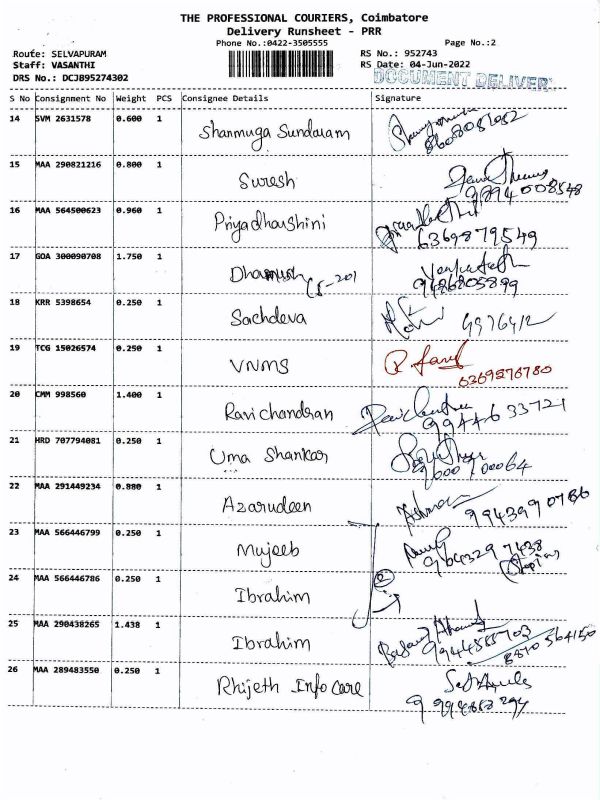 THE PROFESSIONAL COURIERS, Coimbatore
Delivery Runsheet - PRR
Phone No.:0422-3505555 Page No.:2
Route: SELVAPURAM RS No.: 952743
Staff: VASANTHI RS Date: 04-Jun-2022
DRS No.: DCJB95274302 DOCUMENT DELIVER
S No Consignment No Weight PCS Consignee Details Signature
14 SVM 2631578 0.600 1 Shanmuga Sundaram
15 MAA 290821216 0.800 1 Suresh
9894008548
16 MAA 564500623 0.960 1 Priyadharshini
6369879549
17 GOA 300090708 1.750 1
18 KRR 5398654 0.250 1 Sachdeva
19 TCG 15026574 0.250 1 VNMS
6369876780
20 CMM 998560 1.400 1 Ravi chandran
9944633721
21 HRD 707794081 0.250 1 Uma Shankar
22 MAA 291449234 0.880 1 Azarudeen
23 MAA 566446799 0.250 1 Mujeeb
24 MAA 566446786 0.250 1 Ibrahim
25 MAA 290438265 1.438 1 Ibrahim
26 MAA 289483550 0.250 1 Rhijeth Info care